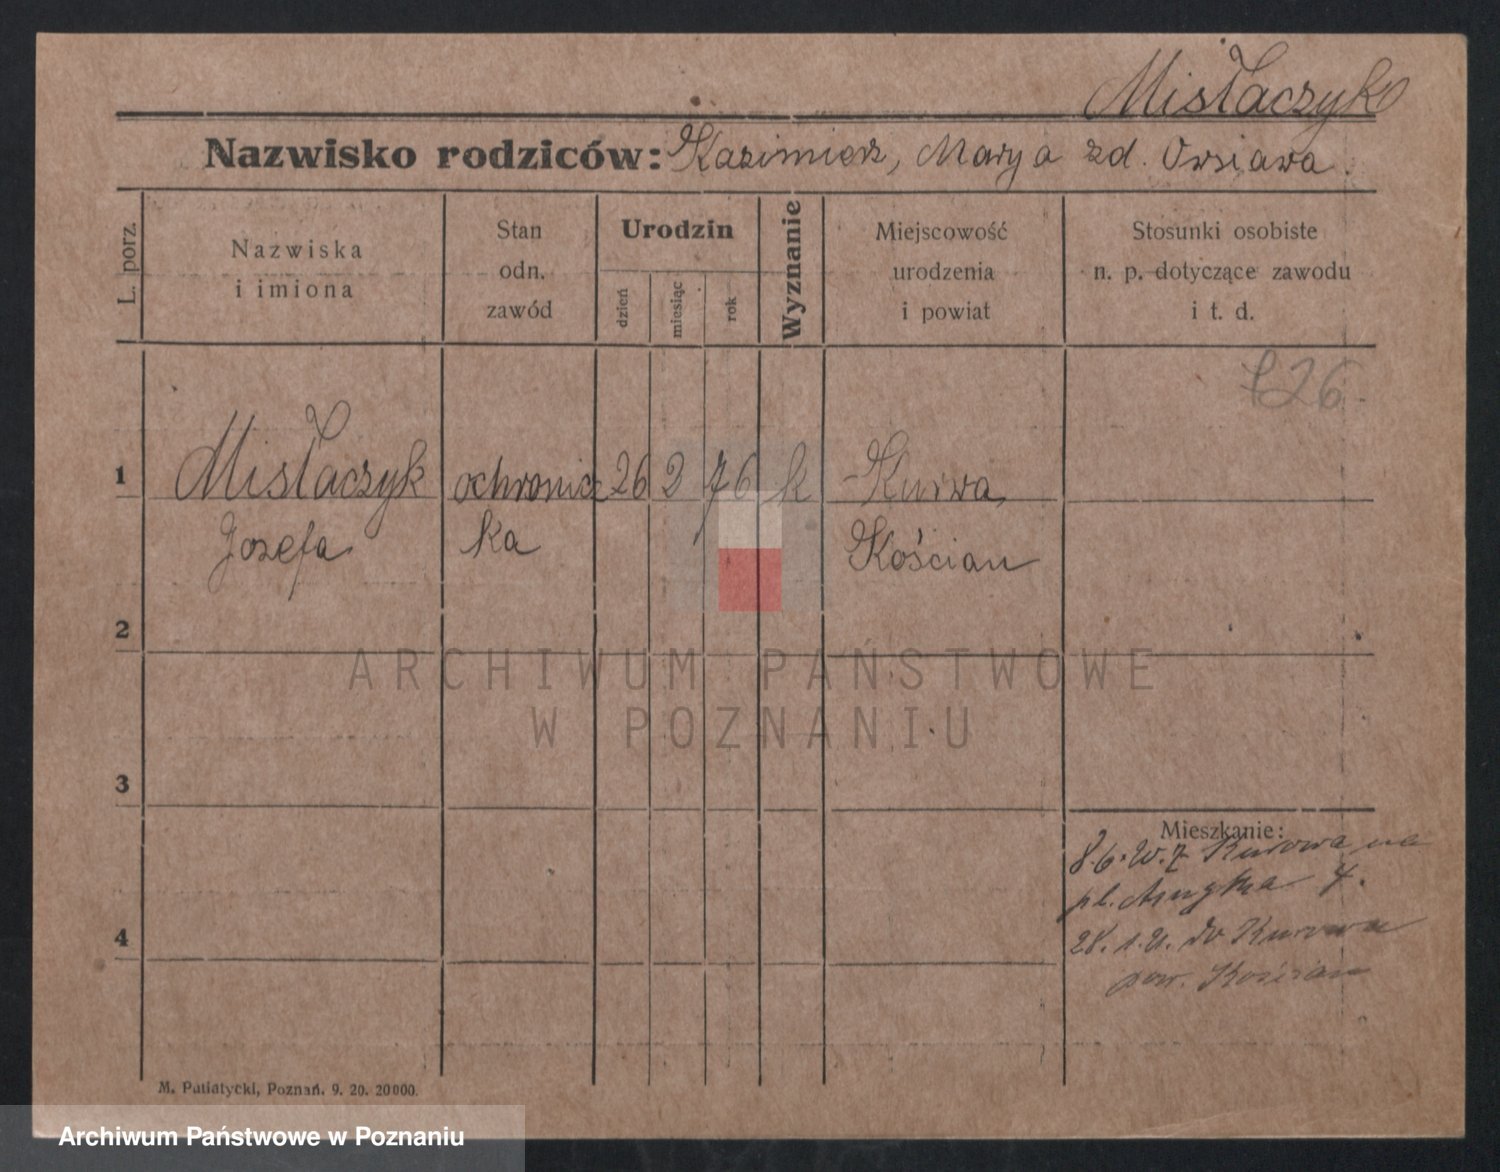 Misłaczyk
Nazwisko rodziców: Kazimierz, Marya zd. Orsiawa.
L. porz.
Nazwiska
i imiona
Stan
odn.
zawód
Urodzin
dzień
miesiąc
rok
Wyznanie
Miejscowość
urodzenia
i powiat
Stosunki osobiste
n. p. dotyczące zawodu
i t. d.
126
1 Misłaczyk ochronicz 26 2 76 k Kurwa,
Józefa ka Kościan
2
ARCHIWUM PAŃSTWOWE
W POZNANIU
3
Mieszkanie:
8.6. Kurowa na
pl. 4.
28. 1. 21. do Kurowa
pow. Kościan
4
M. Putiatycki, Poznań. 9. 20. 20000.
Archiwum Państwowe w Poznaniu